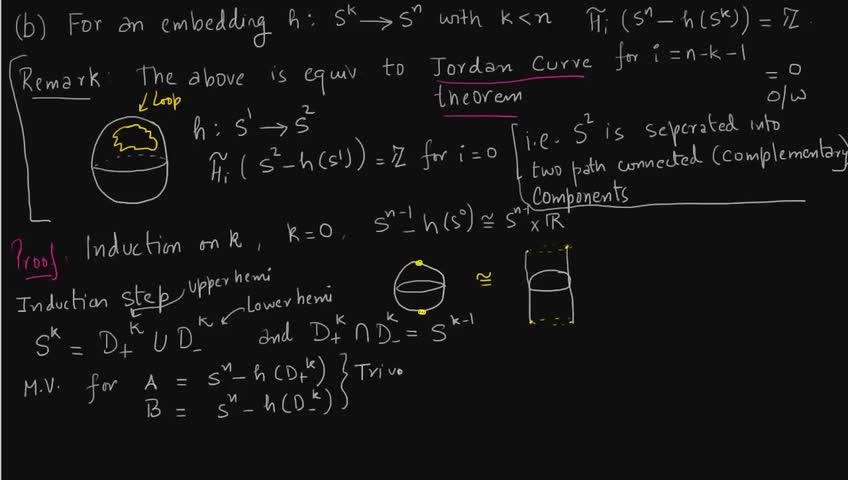 (b) For an embedding h: S^k → S^n with k<n H̃_i (S^n - h(S^k)) = ℤ
for i = n-k-1
= 0
o/w
Remark: The above is equiv to Jordan Curve
theorem
Loop
h: S^1 → S^2
H̃_i (S^2 - h(S^1)) = ℤ for i=0
i.e. S^2 is seperated into
two path connected (complementary)
Components
Proof. Induction on k, k=0, S^{n-1} - h(S^0) ≅ S^{n-1} × ℝ
≅
Induction step Upper hemi
Lower hemi
S^k = D_+^k ∪ D_-^k and D_+^k ∩ D_-^k = S^{k-1}
M.V. for A = S^n - h(D_+^k) } Triv
B = S^n - h(D_-^k)